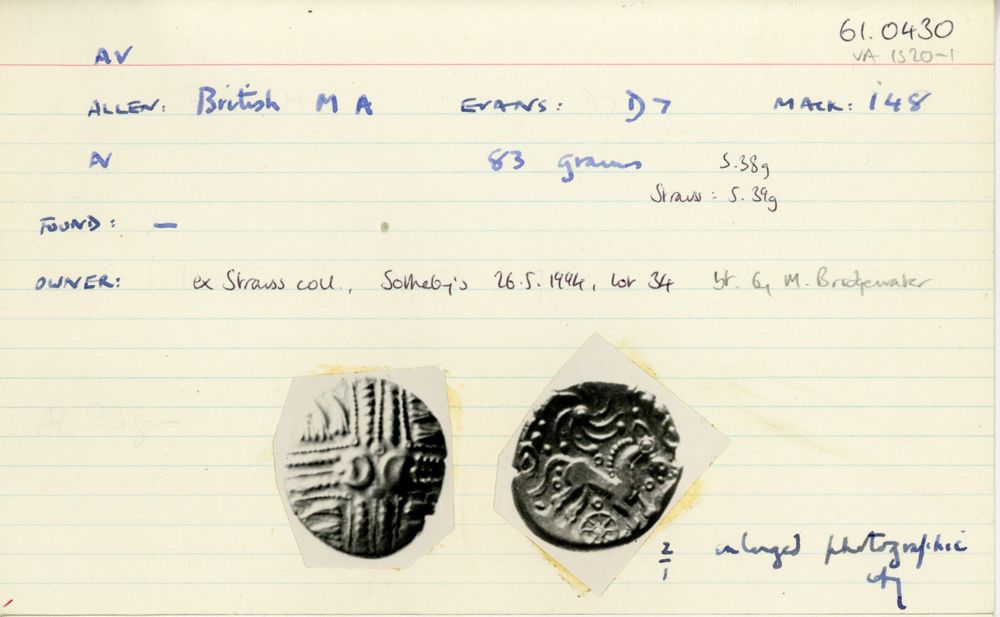 61.0430
VA 1520-1
AV
ALLEN: British M A EVANS: D7 MACK: 148
AV 83 grains 5.38g
Strauss: 5.39g
FOUND: —
OWNER: ex Strauss coll., Sotheby's 26.5.1994, lot 34 bt. by M. Bridgewater
2/1 enlarged photographic